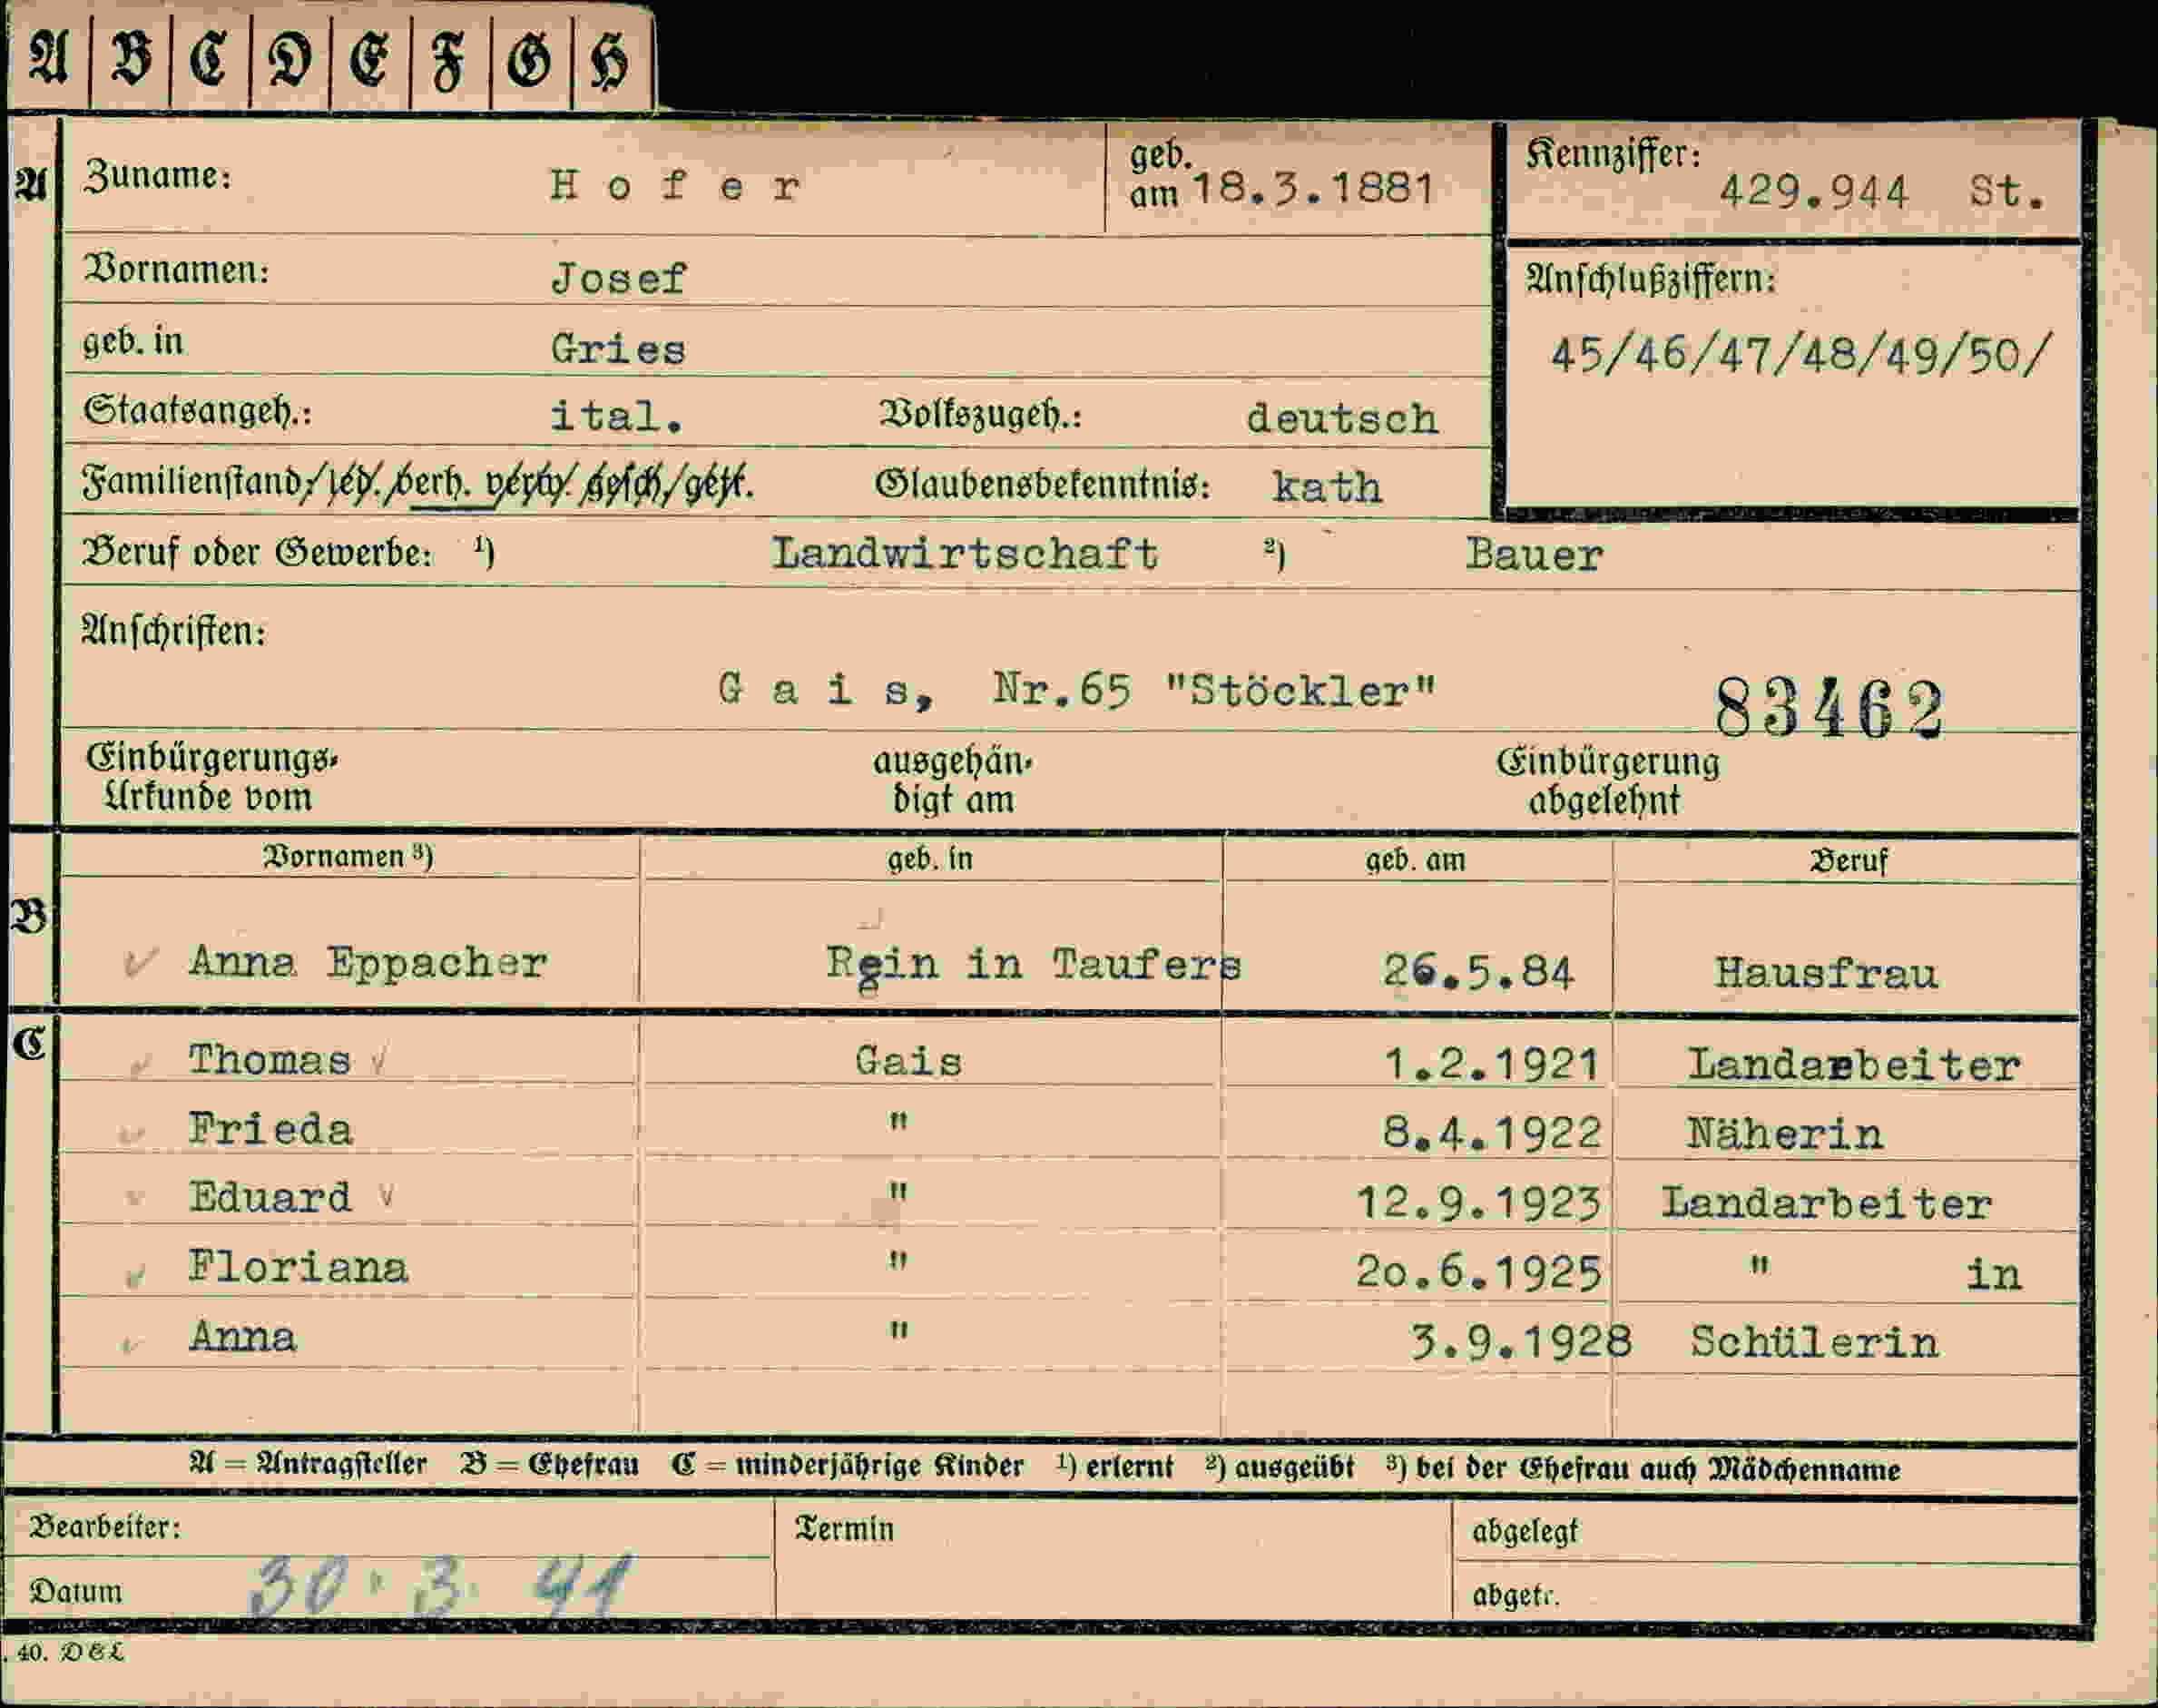 A B C D E F G H
A Zuname: Hofer geb. am 18.3.1881 Kennziffer: 429.944 St.
Vornamen: Josef Anschlußziffern:
geb. in Gries 45/46/47/48/49/50/
Staatsangeh.: ital. Volkszugeh.: deutsch
Familienstand/led./verh. verw. gesch/getr. Glaubensbekenntnis: kath
Beruf oder Gewerbe: ¹) Landwirtschaft ²) Bauer
Anschriften:
Gais, Nr.65 "Stöckler" 83462
Einbürgerungs- ausgehän- Einbürgerung
Urkunde vom digt am abgelehnt
Vornamen ³) geb. in geb. am Beruf
B
Anna Eppacher Rein in Taufers 26.5.84 Hausfrau
C Thomas Gais 1.2.1921 Landarbeiter
Frieda " 8.4.1922 Näherin
Eduard " 12.9.1923 Landarbeiter
Floriana " 20.6.1925 " in
Anna " 3.9.1928 Schülerin
A = Antragsteller B = Ehefrau C = minderjährige Kinder ¹) erlernt ²) ausgeübt ³) bei der Ehefrau auch Mädchenname
Bearbeiter: Termin abgelegt
Datum 30.3.41 abgetr.
. 40. D&L